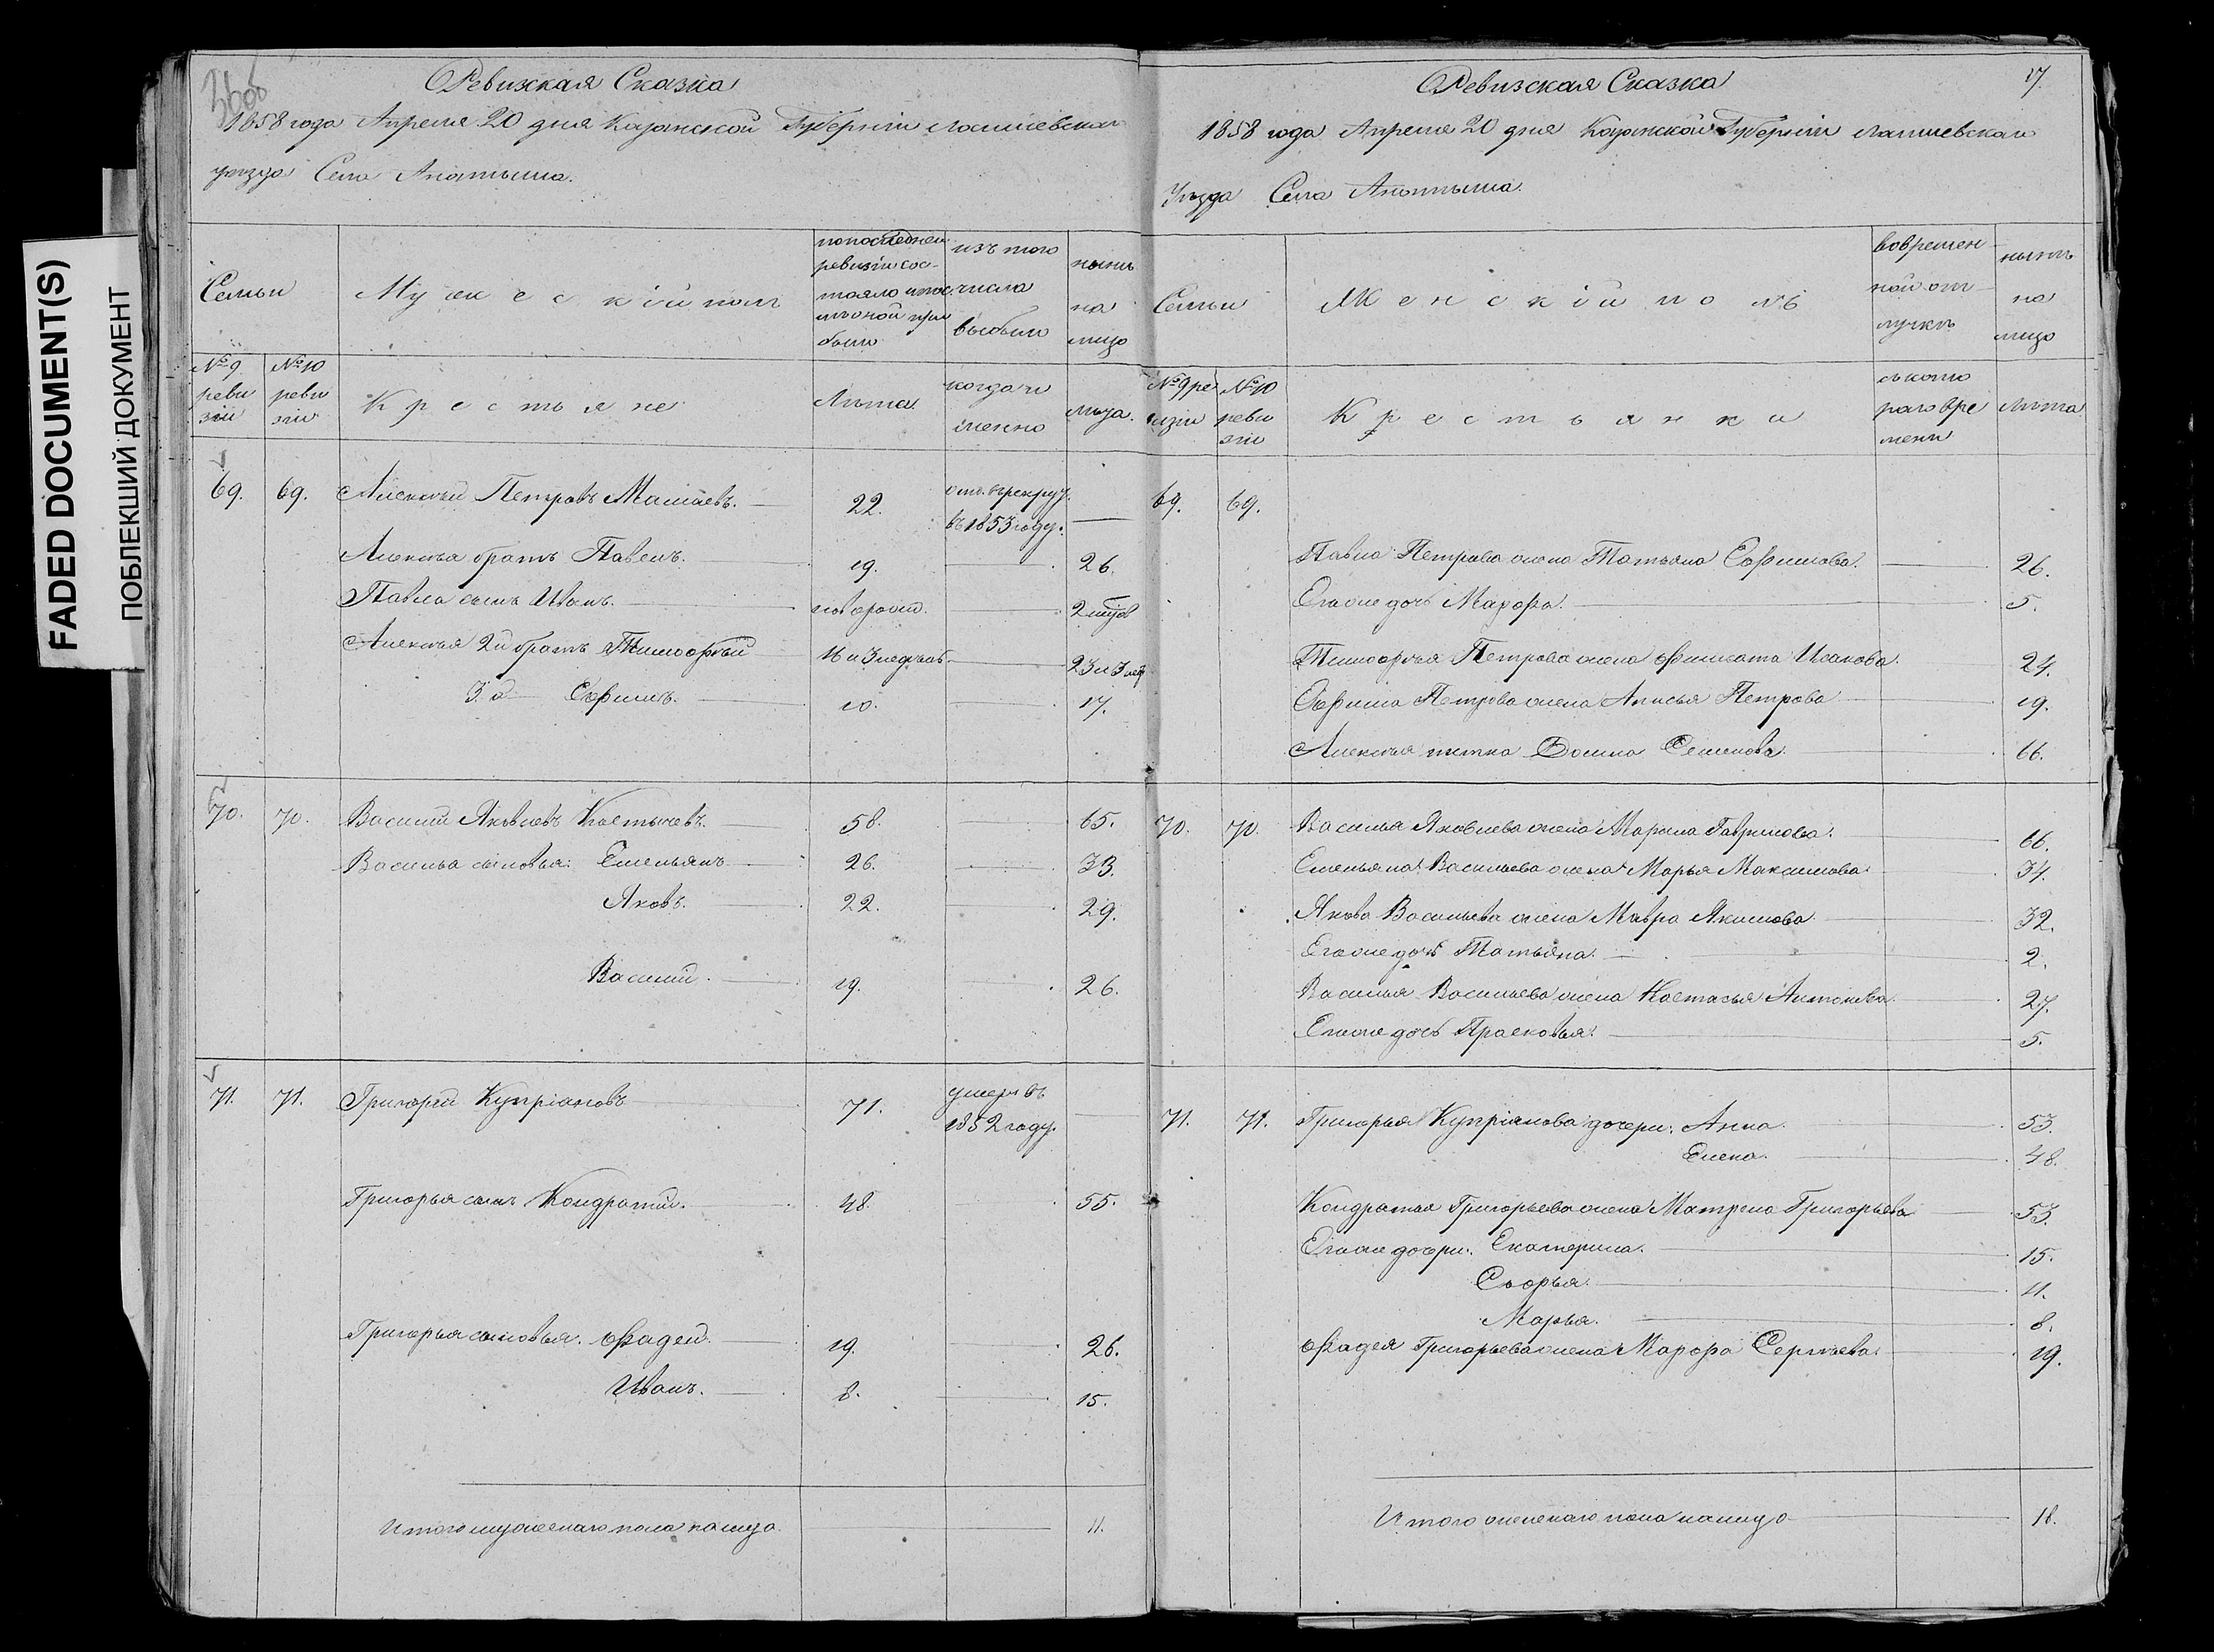 FADED DOCUMENT(S)
ПОБЛЕКШИЙ ДОКУМЕНТ
Ревизская Сказка
1858 года Апреля 20 дня Казанской Губернiи Лаишевскаго
уезда Села
Семьи
Мужескiй полъ
по последней
ревизiи сос-
тояло и пос-
ле оной при
было
изъ того
числа
выбыло
ныне
на
лицо
№ 9
реви
зiи
№ 10
реви
зiи
Крестьяне
Лѣта
когда и
именно
лѣта.
69. 69. Алексѣй Петровъ Мамаевъ. 22. отд. въ рекруты въ 1853 году.
Алексѣя братъ Павелъ. 19. 26.
Павла сынъ Иванъ. новорожд. 2 мѣс
Алексѣя 2й братъ Тимофѣй 16 и 3 нед. 23 и 3 нед
3. й Ефимъ. 10. 17.
70. 70. Василiй Яковлевъ Костычевъ. 58. 65.
Василья сыновья: Емельянъ 26. 33.
Яковъ. 22. 29.
Василiй. 19. 26.
71. 71. Григорiй Купрiяновъ 71. умеръ въ 1852 году.
Григорья сынъ Кондратiй. 48. 55.
Григорья сыновья: Ѳадей. 19. 26.
Иванъ. 8. 15.
Итого мужескаго пола на лицо 11.
17.
Ревизская Сказка
1858 года Апреля 20 дня Казанской Губернiи Лаишевскаго
Уѣзда Села
Семьи
Женскiй полъ
во времен-
ной от-
лучкѣ
ныне
на
лицо
№ 9 ре
визiи
№ 10
реви
зiи
Крестьянки
съ кото
раго вре
мени
лѣта
69. 69.
Павла Петрова жена Татьяна Ефимова. 26.
Его же дочь Марфа. 5.
Тимофѣя Петрова жена Исакова. 24.
Ефима Петрова жена Анисья Петрова 19.
Алексѣя тетка Домна Семенова. 66.
70. 70. Василья Яковлева жена Марина Гаврилова. 66.
Емельяна Васильева жена Марья Максимова 34.
Якова Васильева жена Мавра Якимова 32.
Его же дочь Татьяна. 2.
Василья Васильева жена Настасья Антонова 27.
Его же дочь Прасковья. 5.
71. 71. Григорья Купрiянова дочери: Анна. 53.
Елена. 48.
Кондратья Григорьева жена Матрена Григорьева 53.
Его же дочери: Екатерина. 15.
Софья. 11.
Марья. 8.
Ѳадея Григорьева жена Марфа Сергѣева 19.
Итого женскаго пола на лицо 18.